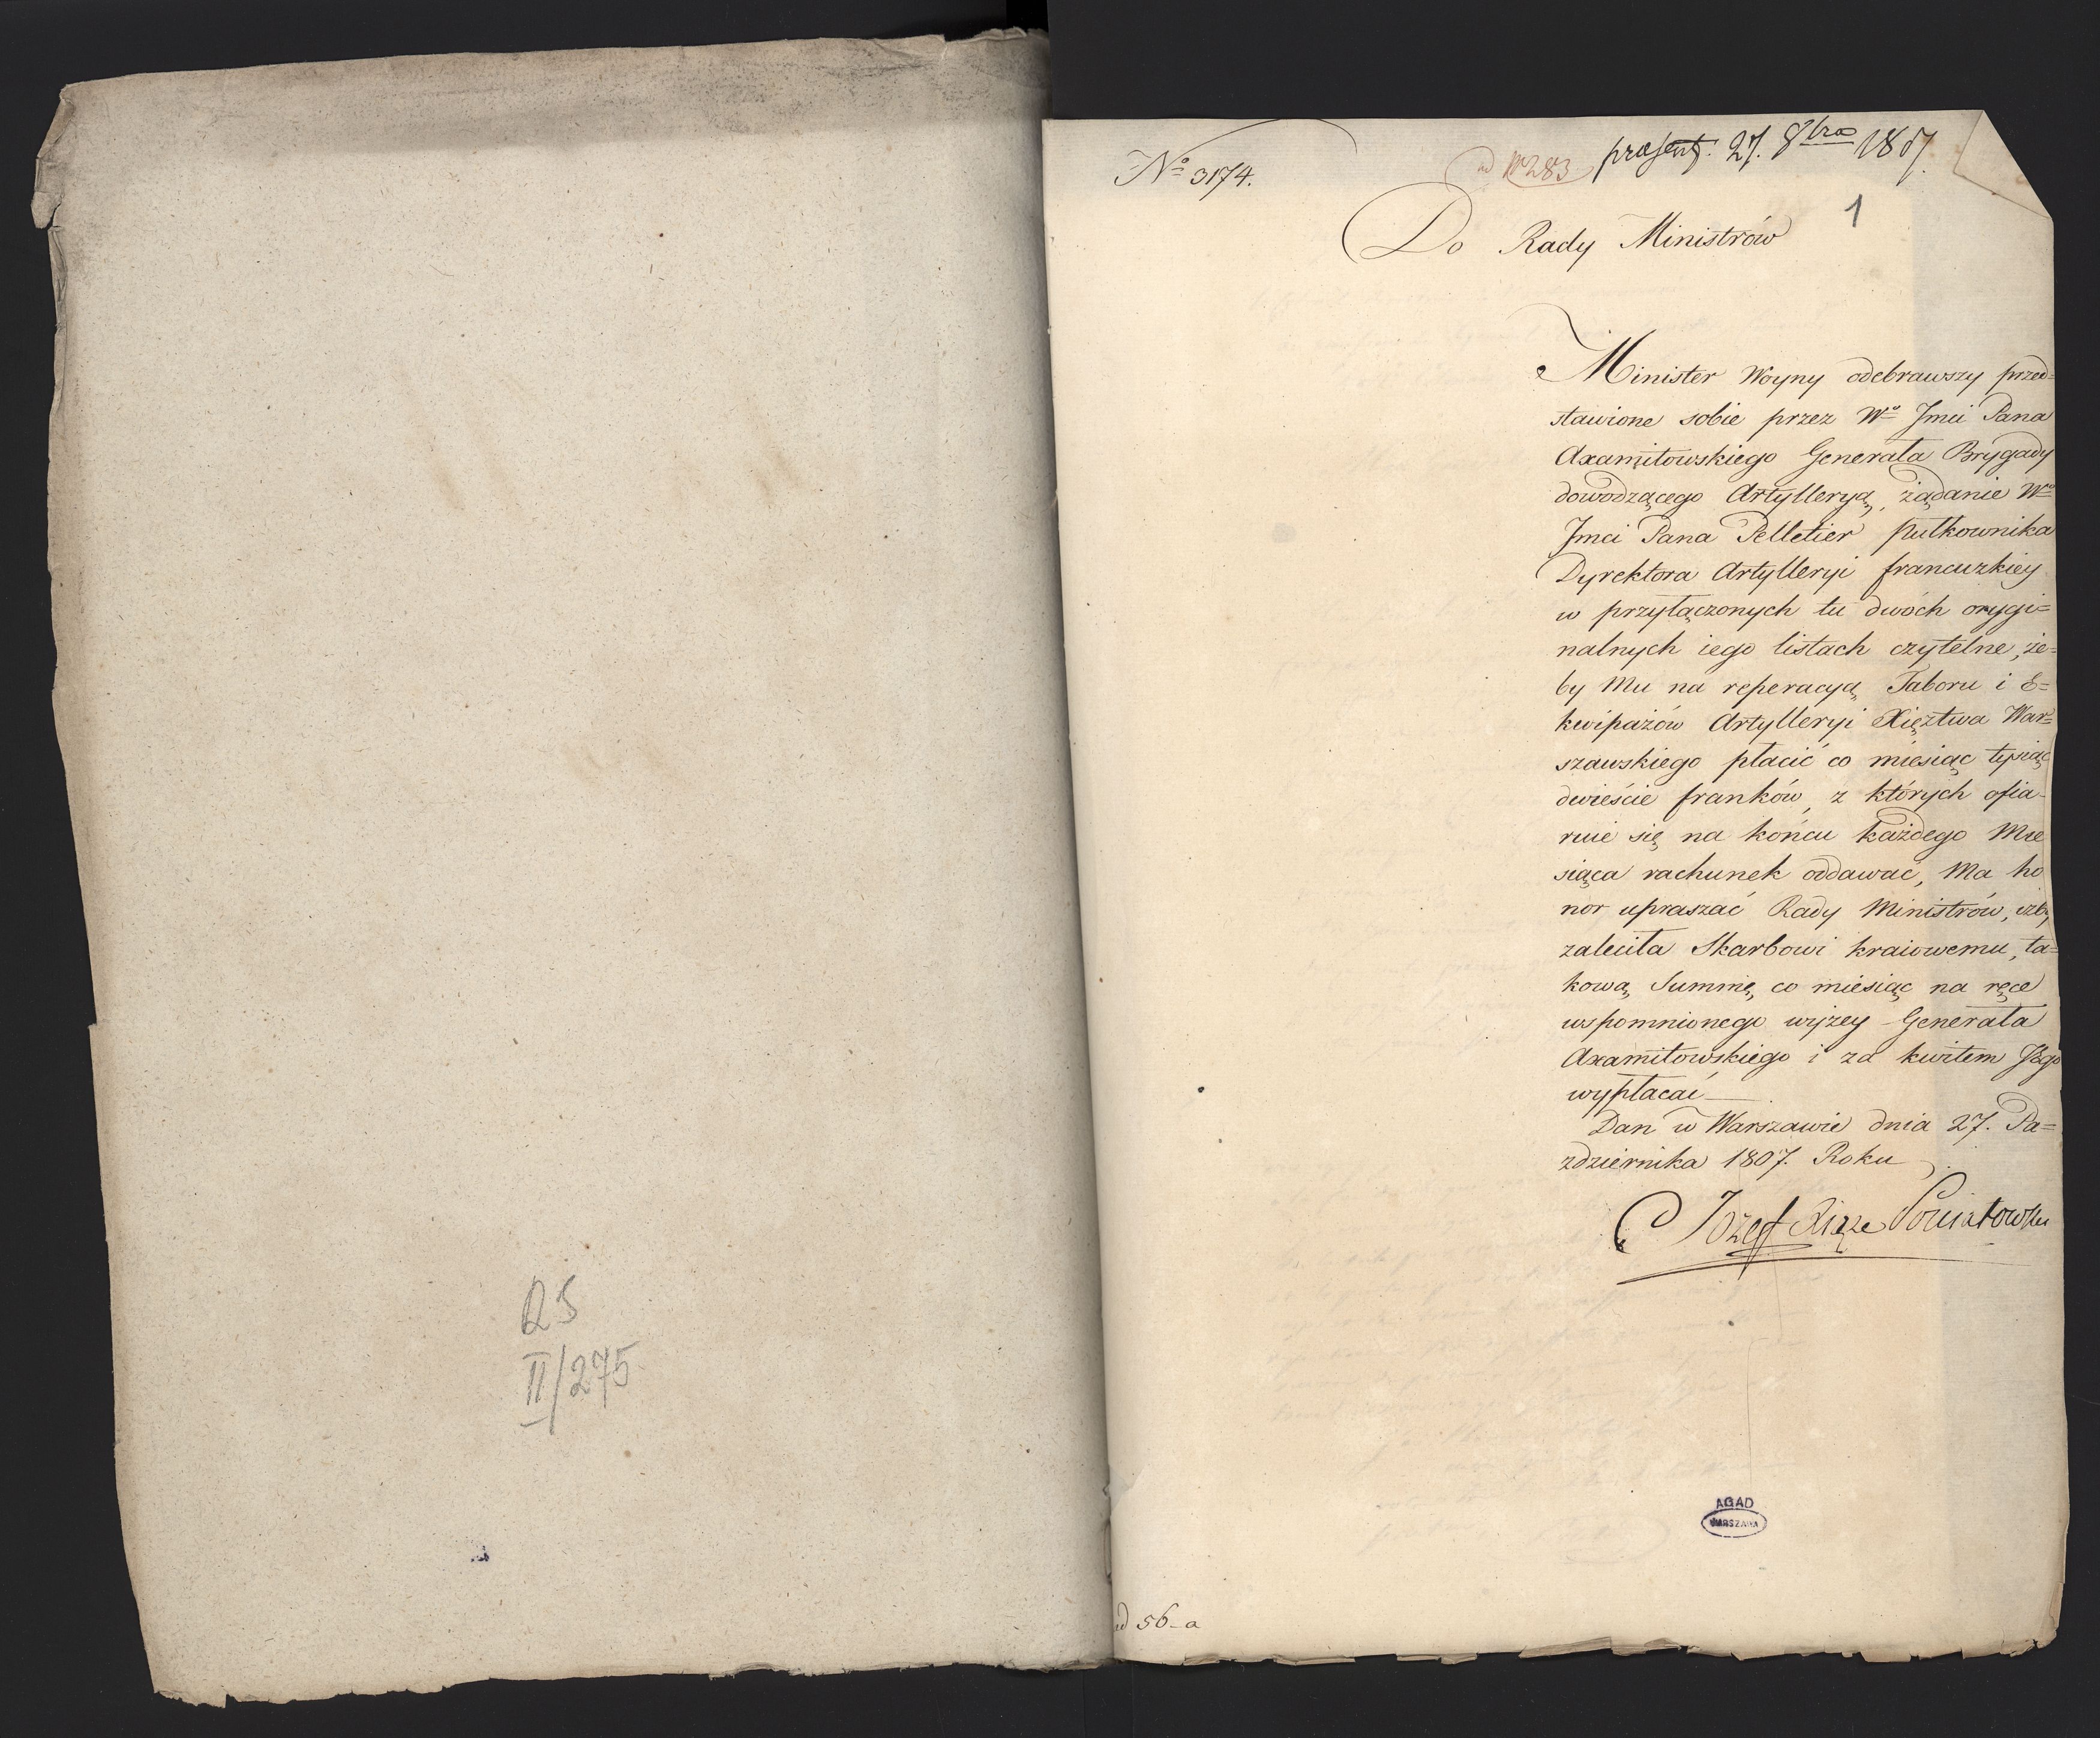 RS
II/275
No 3174.
ad No 283
præsent. 27. 8bra 1807.
1
Do Rady Ministrów
Minister Woyny odebrawszy przed=
stawione sobie przez Wo Jmci Pana
Axamitowskiego Generała Brygady
dowodzącego Artylleryą, żądanie Wo
Jmci Pana Pelletier pułkownika
Dyrektora Artylleryi francuzkiey
w przyłączonych tu dwóch orygi=
nalnych iego listach czytelne, że=
by Mu na reperacyą Taboru i E=
kwipażów Artylleryi Xięztwa War=
szawskiego płacić co miesiąc tysiąc
dwieście franków, z których ofia-
ruie się na końcu każdego Mie
siąca rachunek oddawać, Ma ho
nor upraszać Rady Ministrów, iżby
zaleciła Skarbowi kraiowemu, ta=
kową Summę, co miesiąc na ręce
wspomnionego wyżey Generała
Axamitowskiego i za kwitem Jego
wypłacać
Dan w Warszawie dnia 27. Pa=
zdziernika 1807. Roku
Józef Xiąże Poniatowski
AGAD
WARSZAWA
ad 56-a